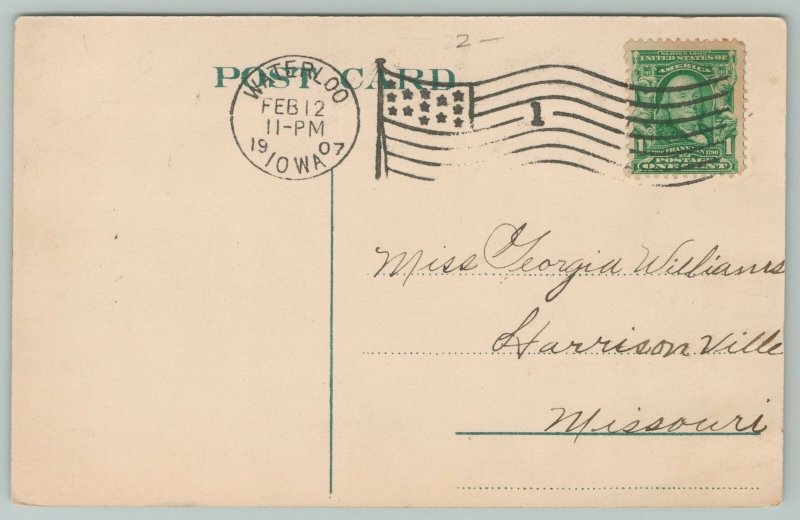 2-
POST CARD
WATERLOO
FEB 12
11-PM
1907
IOWA
1
SERIES 1902
UNITED STATES OF
AMERICA
1 FRANKLIN 1790 1
POSTAGE
ONE CENT
Miss Georgia Williams
Harrisonville
Missouri